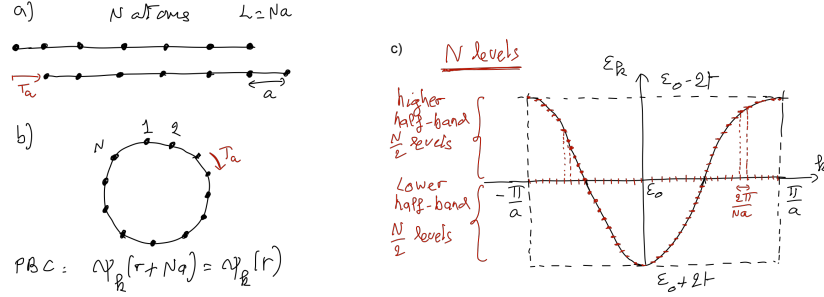 a) N atoms L=Na
Ta
a
b)
N 1 2
Ta
PBC: ψk(r+Na)=ψk(r)
c) N levels
εk
ε0-2t
higher
half-band
N/2 levels
Lower
half-band
N/2 levels
-π/a
ε0
2π/Na
π/a
k
ε0+2t